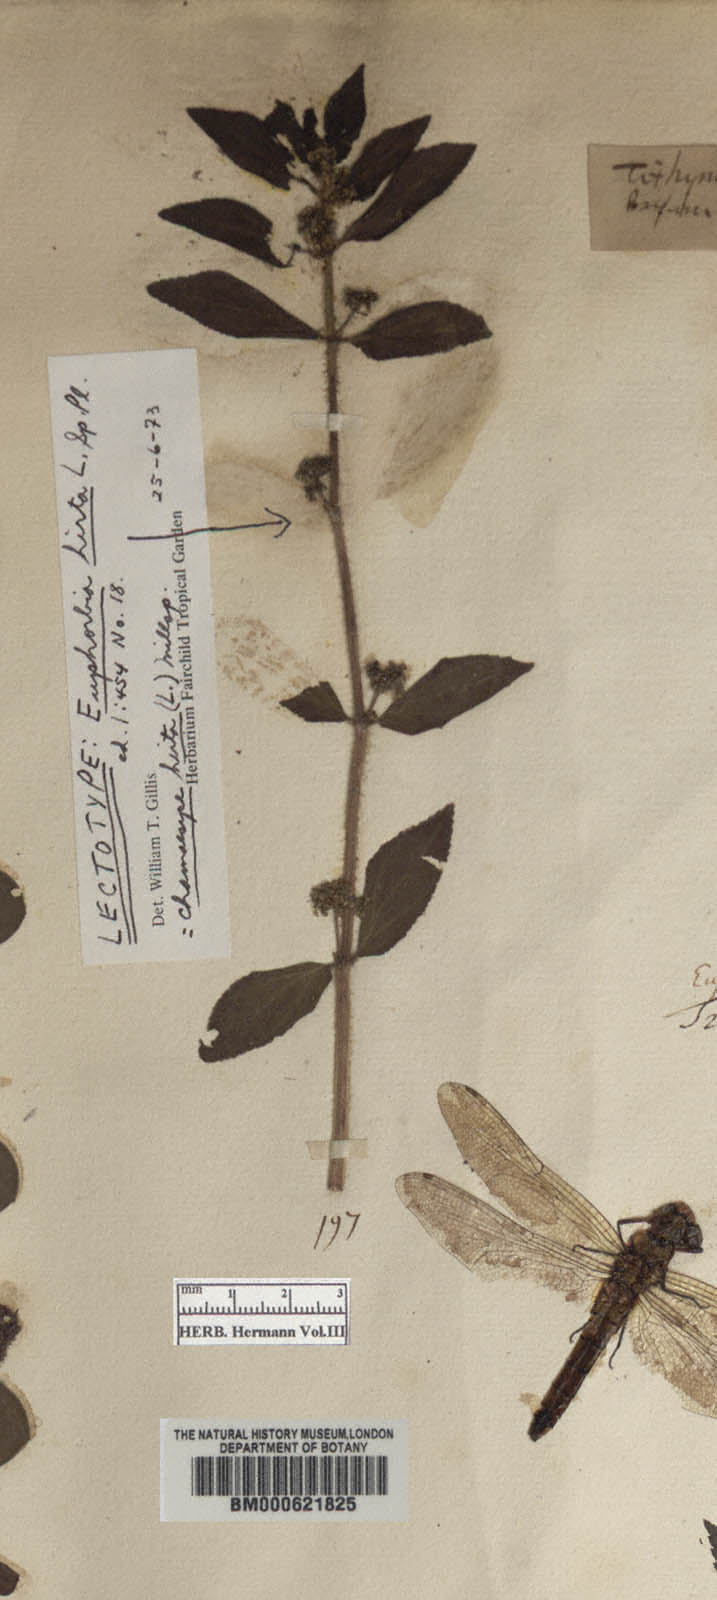 Tithym
LECTOTYPE: Euphorbia hirta L. Sp. Pl.
ed. 1: 454 No. 18.
Det. William T. Gillis 25-6-73
= Chamaesyce hirta (L.) Millsp.
Herbarium Fairchild Tropical Garden
197
mm 1 2 3
HERB. Hermann Vol.III
THE NATURAL HISTORY MUSEUM,LONDON
DEPARTMENT OF BOTANY
BM000621825